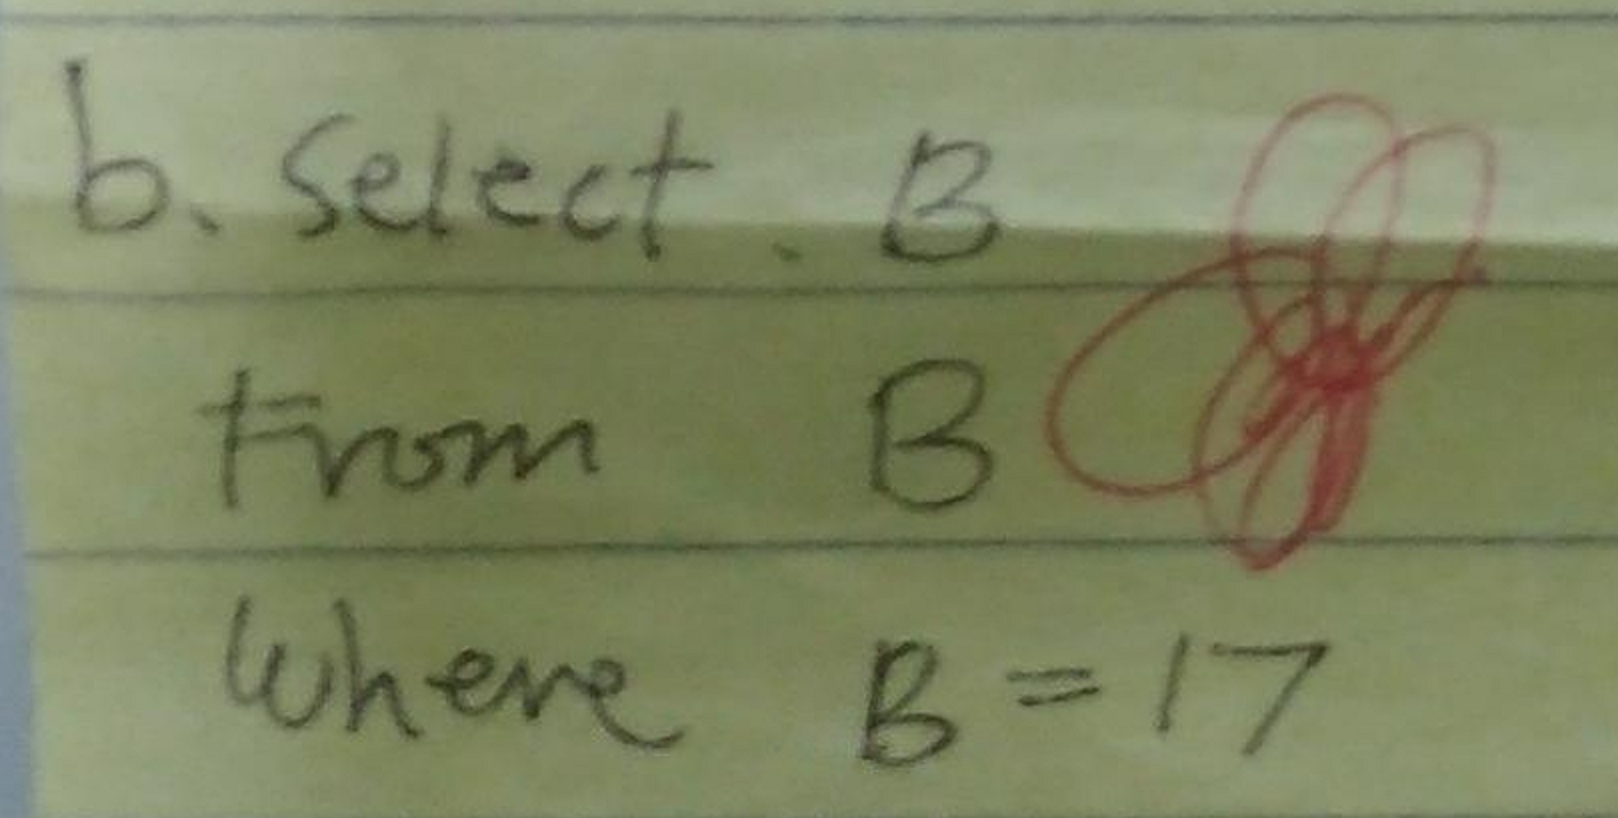 b. Select. B
From B
Where B = 17